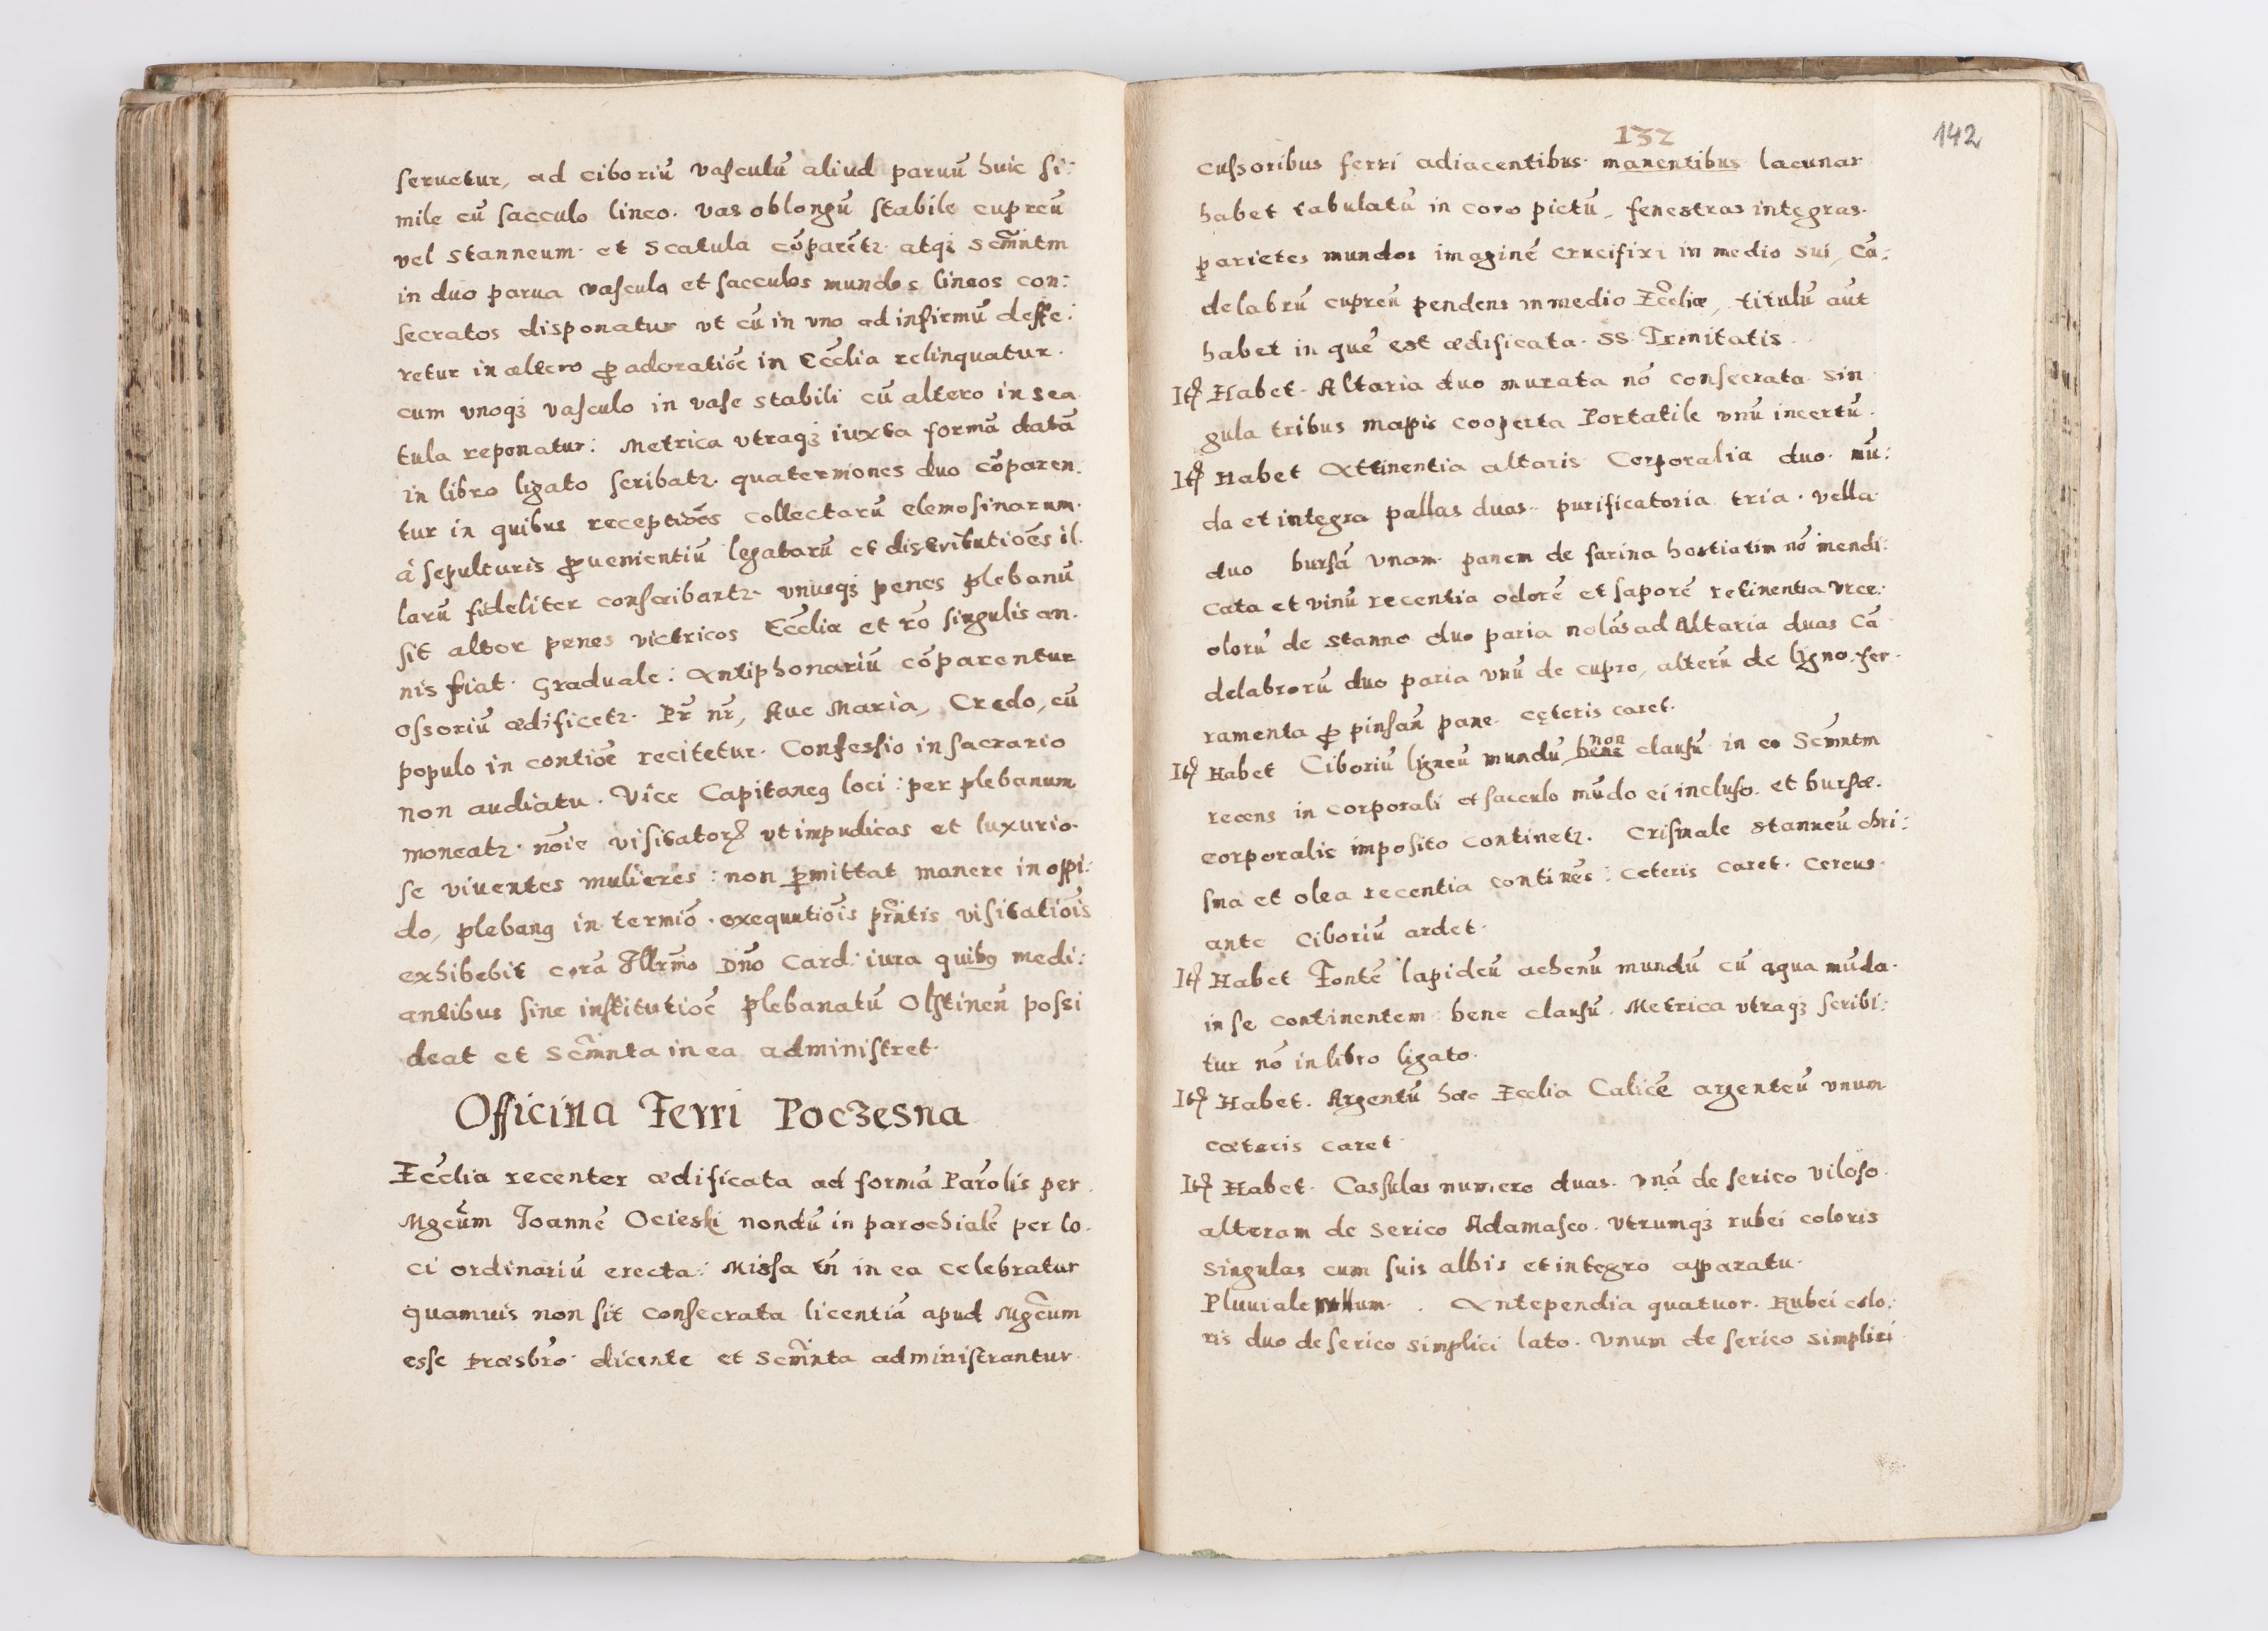 seruetur, ad ciboriũ vasculũ aliud paruũ huic si:
mile cũ sacculo lineo. vas oblongũ stabile cupreũ
vel stanneum. et Scatula cõparẽtz. atqʒ Scm̃ntm
in duo parua vascula et sacculos mundos lineos con:
secratos disponatur vt cũ in vno ad infirmũ deffe:
retur in altero ꝓ adoratiõe in Eccĺia relinquatur.
cum vnoqʒ vasculo in vase stabili cũ altero in sca
tula reponatur: Metrica vtraqʒ iuxta formã datã
in libro ligato scribatz. quaterniones duo cõparen.
tur in quibus receptiões collectarũ elemosinarum.
à sepulturis ꝓuenientiũ legatarũ et distributiões il.
larũ fideliter conscribantz. vnusqʒ penes plebanũ
sit alter penes victricos Eccĺiæ et rõ singulis an.
nis fiat. Graduale: Antiphonariũ cõparentur
ossoriũ ædificetz. Pr̃ nr̃, Aue Maria, Credo, cũ
populo in contiõe recitetur. Confessio in sacrario
non audiatu. Vice Capitaneꝰ loci: per plebanum
moneatz. nõie visitatorꝫ vt impudicas et luxurio.
se viuentes mulieres: non ꝑmittat manere in oppi:
do, plebanꝰ in termiõ. exequutiõis pñtis visitatiõis
exhibebit corã Illr̃mo Dño Card: iura quibꝰ medi:
antibus sine institutiõe plebanatũ Olstineñ possi
deat et Scm̃nta in ea administret.
Officina Ferri Poczesna
Eccĺia recenter ædificata ad formã Parõlis per.
Mgcũm Joannẽ Ocieski nondũ in parochialẽ per lo.
ci ordinariũ erecta: Missa tñ in ea celebratur
quamuis non sit consecrata licentiã apud Mgc̃um
esse præsbr̃o dicente et Scm̃nta administrantur.
132
142
cussoribus ferri adiacentibus. manentibus lacunar
habet tabulatũ in coro pictũ, fenestras integras.
parietes mundos imaginẽ crucifixi in medio sui, Cã:
delabrũ cupreũ pendens in medio Eccĺiæ, titulũ aũt
habet in quẽ est ædificata. SS. Trinitatis.
Itꝫ Habet. Altaria duo murata nõ consecrata. sin
gula tribus mapis cooperta Portatile vnũ incertũ.
Itꝫ Habet Attinentia altaris Corporalia duo. mũ:
da et integra pallas duas. purificatoria tria. vella
duo bursã vnam. panem de farina hostiatim nõ mendi:
cata et vinũ recentia odorẽ et saporẽ retinentia vrce:
olorũ de stanno duo paria nolas ad Altaria duas Cã
delabrorũ duo paria vnũ de cupro, alterũ de ligno. fer.
ramenta ꝓ pinsañ pane. cęteris caret.
Itꝫ Habet Ciboriũ ligneũ mundũ, bene non clausũ in eo Scm̃ntm
recens in corporali et sacculo mũdo ei incluso. et bursæ.
corporalis imposito continetz. Crismale stanneũ chri:
sma et olea recentia continẽs: ceteris caret. Cereus.
ante Ciboriũ ardet.
Itꝫ Habet Fontẽ lapideũ ahenũ mundũ cũ aqua mũda.
in se continentem bene clausũ. Metrica vtraqʒ scribi:
tur nõ in libro ligato.
Itꝫ Habet. Argentũ hæc Ecclia Calicẽ argenteũ vnum
cæteris caret.
Itꝫ Habet. Cassulas numero duas. vnã de serico viloso.
alteram de serico Adamasco. vtrumqʒ rubei coloris
singulas cum suis albis et integro apparatu.
Pluuiale nullum. Antependia quatuor. Rubei colo:
ris duo de serico simplici lato. vnum de serico simplici